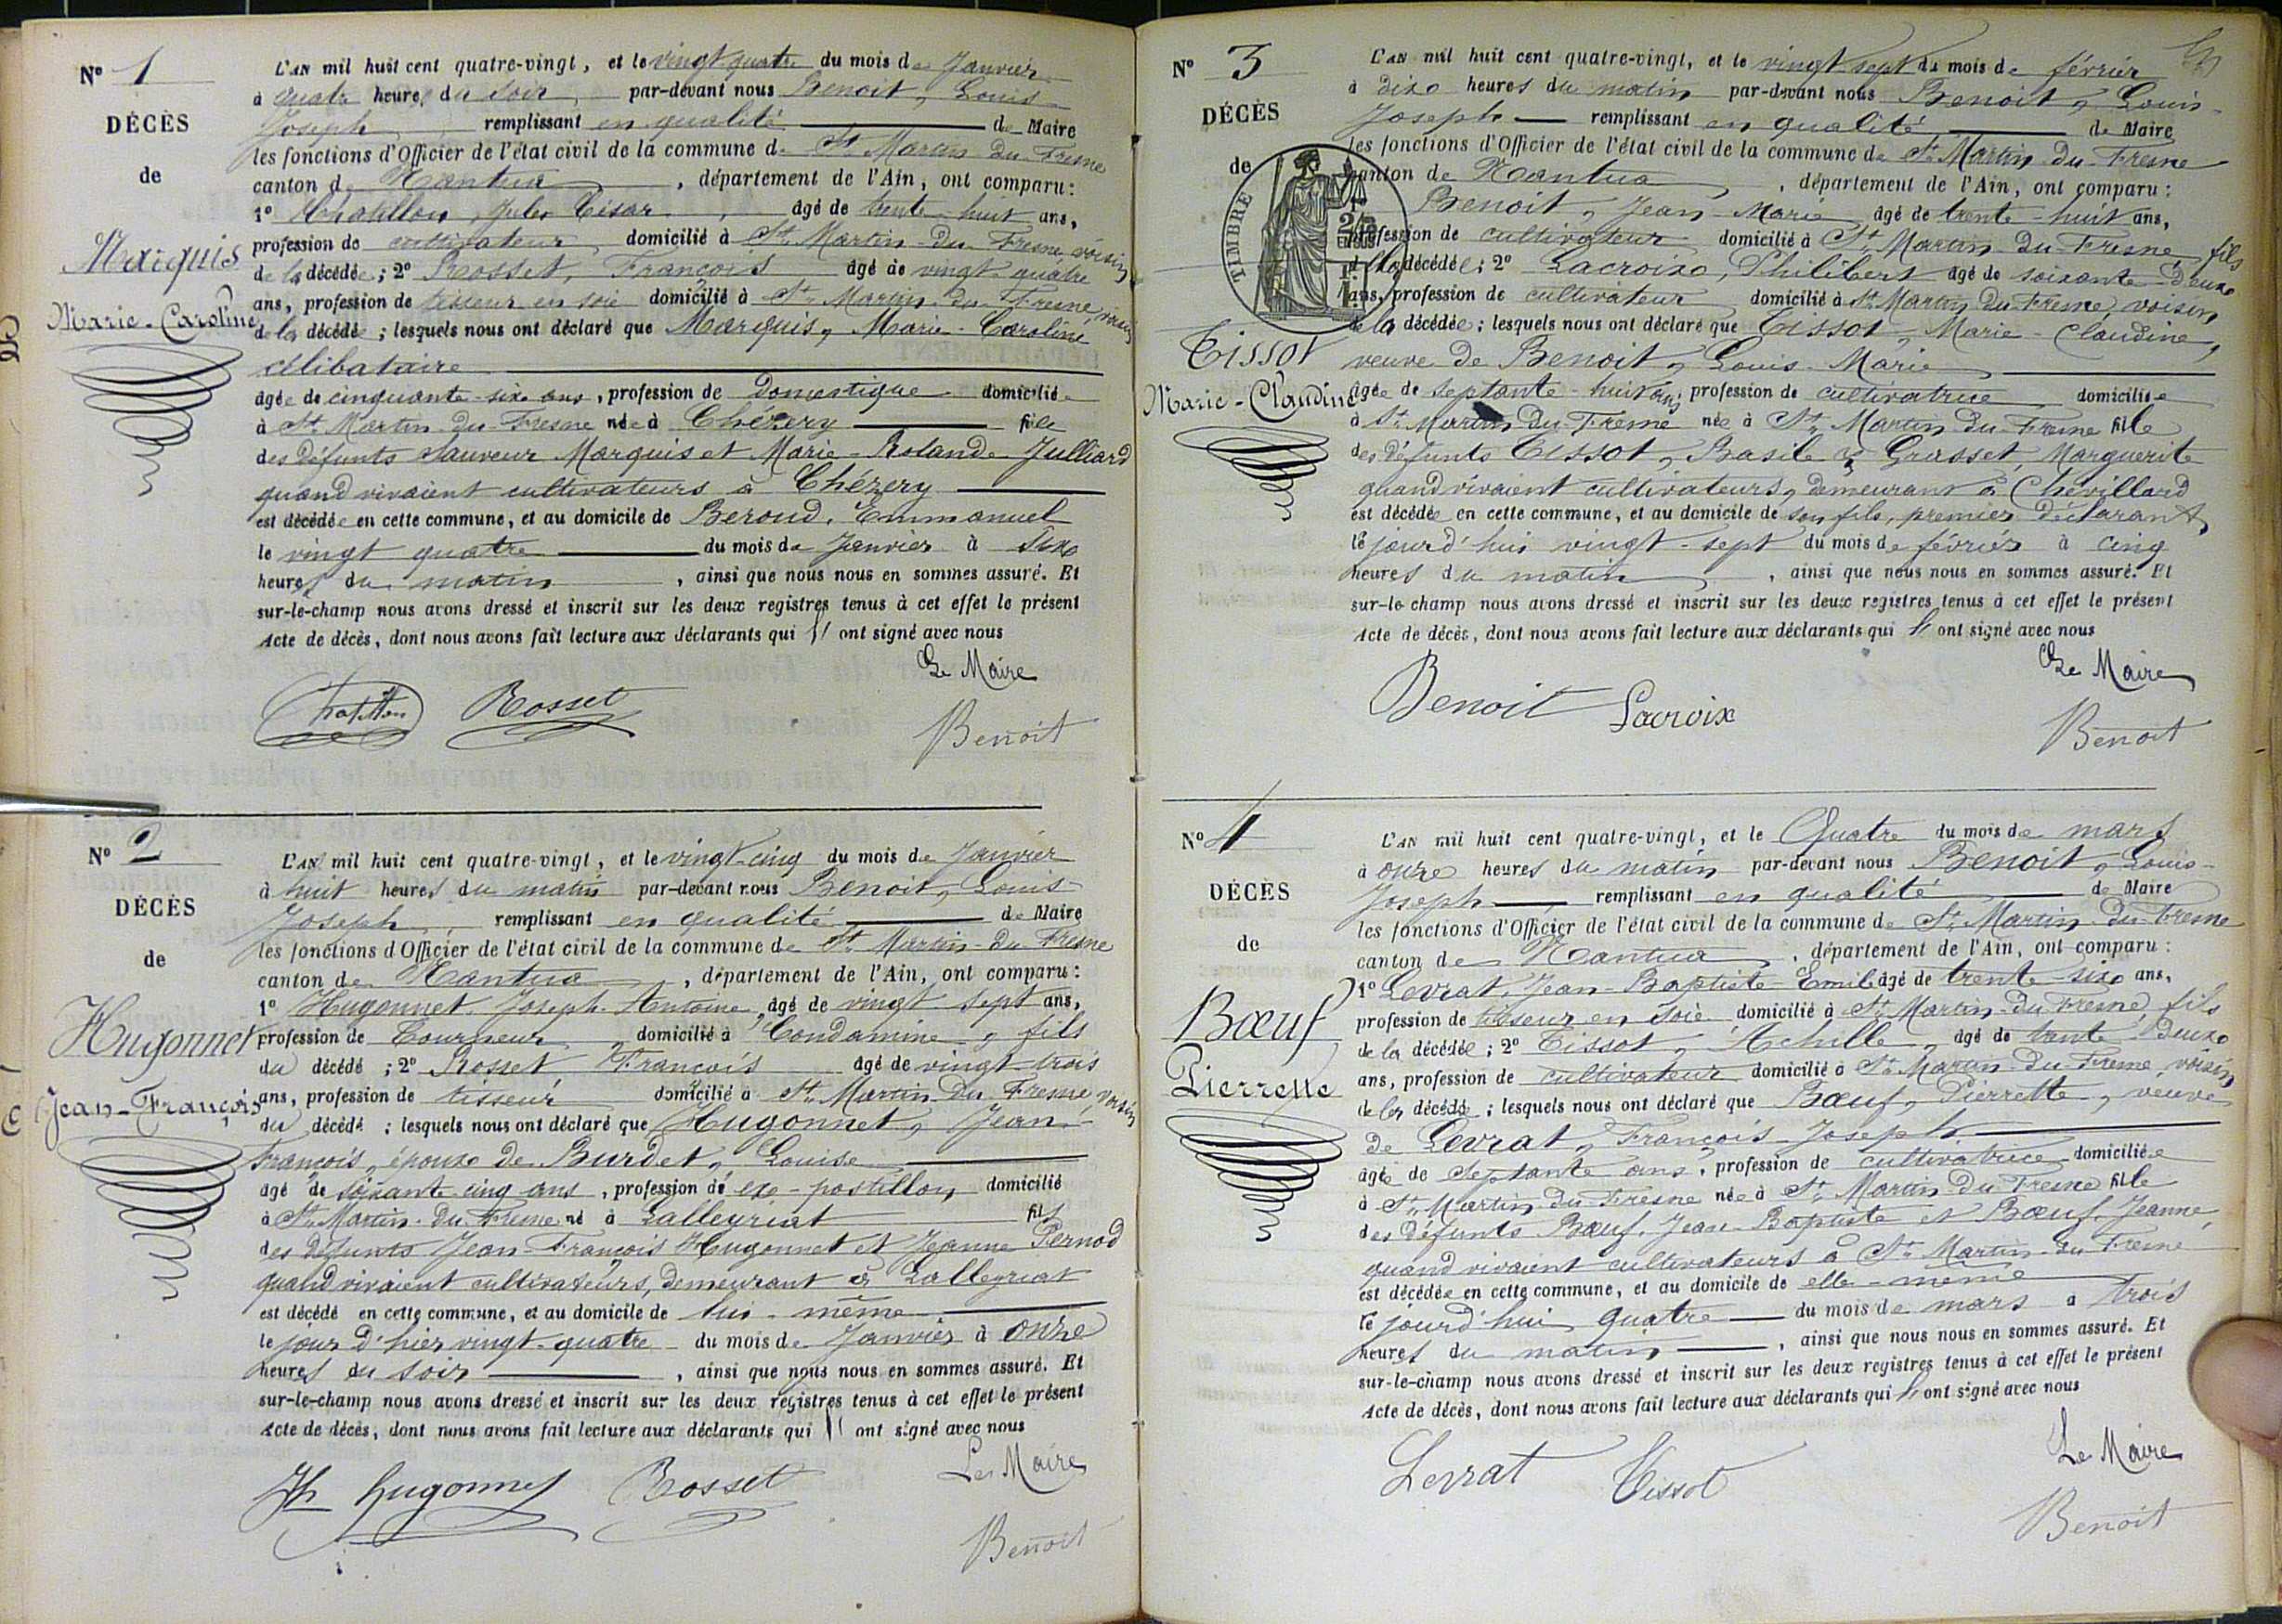 N° 1
DÉCÈS
de
Marquis
Marie-Caroline
L'AN mil huit cent quatre-vingt, et le vingt quatre du mois de Janvier
à quatre heures du soir par-devant nous Benoit, Louis-
Joseph remplissant en qualité de Maire
les fonctions d'Officier de l'état civil de la commune de St Martin-du-Fresne
canton de Nantua, département de l'Ain, ont comparu:
1° Chatillon, Jules César, âgé de trente-huit ans,
profession de cultivateur domicilié à St Martin-du-Fresne, voisin
de la décédée; 2° Rosset, François âgé de vingt quatre
ans, profession de tisseur en soie domicilié à St Martin-du-Fresne, voisin
de la décédé; lesquels nous ont déclaré que Marquis, Marie-Caroline
célibataire
âgée de cinquante-six ans, profession de Domestique domiciliée
à St Martin-du-Fresne née à Chézery fille
des défunts Sauveur Marquis et Marie-Rolande Julliard
quand vivaient cultivateurs à Chézery
est décédée en cette commune, et au domicile de Beroud, Emmanuel
le vingt quatre du mois de Janvier à six
heures du matin, ainsi que nous nous en sommes assuré. Et
sur-le-champ nous avons dressé et inscrit sur les deux registres tenus à cet effet le présent
Acte de décès, dont nous avons fait lecture aux déclarants qui ont signé avec nous
Le Maire
Chatillon Rosset
Benoit
N° 2
DÉCÈS
de
Hugonnet
Jean-François
L'AN mil huit cent quatre-vingt, et le vingt-cinq du mois de Janvier
à huit heures du matin par-devant nous Benoit, Louis-
Joseph remplissant en qualité de Maire
les fonctions d'Officier de l'état civil de la commune de St Martin-du-Fresne
canton de Nantua, département de l'Ain, ont comparu:
1° Hugonnet Joseph-Antoine, âgé de vingt-sept ans,
profession de Tourneur domicilié à Condamine, fils
du décédé; 2° Rosset François âgé de vingt-trois
ans, profession de tisseur domicilié à St Martin-du-Fresne, voisin
du décédé; lesquels nous ont déclaré que Hugonnet, Jean-
François, époux de Burdet, Louise
âgé de soixante-cinq ans, profession de ex-postillon domicilié
à St Martin-du-Fresne né à Lalleyriat fils
des défunts Jean-François Hugonnet et Jeanne Pernod
quand vivaient cultivateurs, demeurant à Lalleyriat
est décédé en cette commune, et au domicile de lui-même
le jour d'hier vingt-quatre du mois de Janvier à onze
heures du soir, ainsi que nous nous en sommes assuré. Et
sur-le-champ nous avons dressé et inscrit sur les deux registres tenus à cet effet le présent
Acte de décès, dont nous avons fait lecture aux déclarants qui ont signé avec nous
Le Maire
Jh hugonnet Rosset
Benoit
N° 3
DÉCÈS
de
TIMBRE
Tissot
Marie-Claudine
L'AN mil huit cent quatre-vingt, et le vingt-sept du mois de février
à dix heures du matin par-devant nous Benoit, Louis-
Joseph remplissant en qualité de Maire
les fonctions d'Officier de l'état civil de la commune de St Martin-du-Fresne
canton de Nantua, département de l'Ain, ont comparu:
Benoit, Jean-Marie âgé de trente-huit ans,
profession de cultivateur domicilié à St Martin-du-Fresne, fils
de la décédée; 2° Lacroix, Philibert âgé de soixante-deux
ans, profession de cultivateur domicilié à St Martin-du-Fresne, voisin
de la décédée; lesquels nous ont déclaré que Tissot, Marie-Claudine,
veuve de Benoit, Louis-Marie
âgée de septante-huit ans, profession de cultivatrice domiciliée
à St Martin-du-Fresne née à St Martin-du-Fresne fille
des défunts Tissot, Basile & Grasset, Marguerite
quand vivaient cultivateurs, demeurant à Chevillard
est décédée en cette commune, et au domicile de son fils, premier déclarant,
le jourd'hui vingt-sept du mois de février à cinq
heures du matin, ainsi que nous nous en sommes assuré. Et
sur-le-champ nous avons dressé et inscrit sur les deux registres tenus à cet effet le présent
Acte de décès, dont nous avons fait lecture aux déclarants qui ont signé avec nous
Le Maire
Benoit Lacroix
Benoit
N° 4
DÉCÈS
de
Bœuf
Pierrette
L'AN mil huit cent quatre-vingt, et le Quatre du mois de mars
à onze heures du matin par-devant nous Benoit, Louis-
Joseph, remplissant en qualité de Maire
les fonctions d'Officier de l'état civil de la commune de St Martin-du-Fresne
canton de Nantua, département de l'Ain, ont comparu:
1° Levrat, Jean-Baptiste-Emile âgé de trente-six ans,
profession de tisseur en soie domicilié à St Martin-du-Fresne, fils
de la décédée; 2° Tissot, Achille, âgé de trente-deux
ans, profession de cultivateur domicilié à St Martin-du-Fresne, voisin
de la décédée; lesquels nous ont déclaré que Bœuf, Pierrette, veuve
de Levrat, François-Joseph
âgée de septante ans, profession de cultivatrice domiciliée
à St Martin-du-Fresne née à St Martin-du-Fresne fille
des défunts Bœuf, Jean-Baptiste et Bœuf, Jeanne,
quand vivaient cultivateurs à St Martin-du-Fresne
est décédée en cette commune, et au domicile de elle-même
le jourd'hui quatre du mois de mars à trois
heures du matin, ainsi que nous nous en sommes assuré. Et
sur-le-champ nous avons dressé et inscrit sur les deux registres tenus à cet effet le présent
Acte de décès, dont nous avons fait lecture aux déclarants qui ont signé avec nous
Le Maire
Levrat Tissot
Benoit